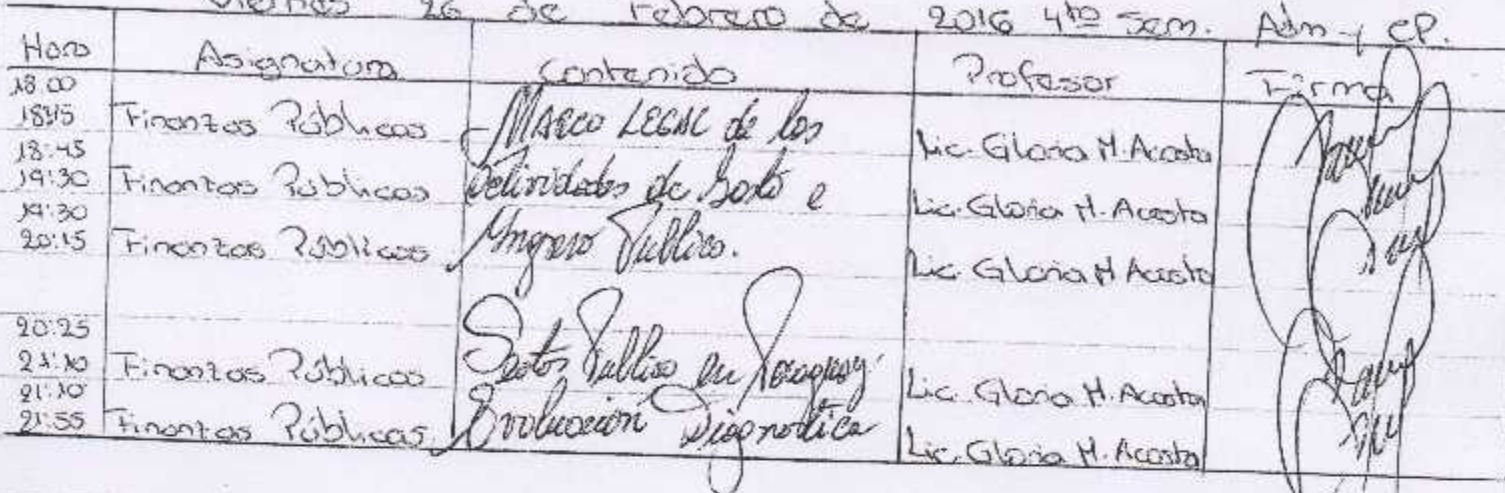 Viernes 26 de Febrero de 2016 4to Sem. Adm y CP.
Hora Asignatura Contenido Profesor Firma
18:00
18:45 Finanzas Públicas Marco Legal de las Lic. Gloria M. Acosta
18:45
19:30 Finanzas Públicas Actividades de Gasto e Lic. Gloria M. Acosta
19:30
20:15 Finanzas Públicas Ingreso Publico. Lic. Gloria M Acosta
20:25
21:10 Finanzas Públicas Publico en Paraguay Lic. Gloria M. Acosta
21:10
21:55 Finanzas Públicas Evaluación Diagnostica Lic. Gloria M. Acosta